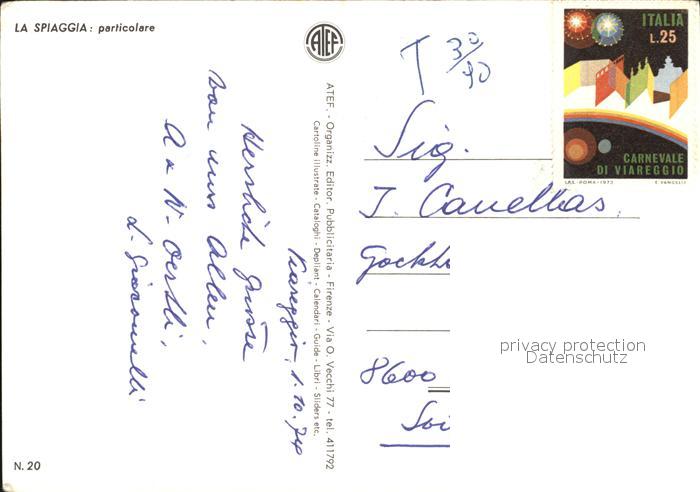 LA SPIAGGIA: particolare
Viareggio, 1.10.74
Herzliche Grüsse
von uns Allen,
A + W. Oertli,
L. Giacomelli
N. 20
ATEF
ATEF. - Organizz. Editor. Pubblicitaria - Firenze - Via O. Vecchi 77 - tel. 411792
Cartoline illustrate - Cataloghi - Depliant - Calendari - Guide - Libri - Sliders etc.
T 30/90
ITALIA
L.25
CARNEVALE
DI VIAREGGIO
I.P.S.-ROMA-1973 E. VANGELLI
Sig.
J. Canellas,
8600
privacy protection
Datenschutz